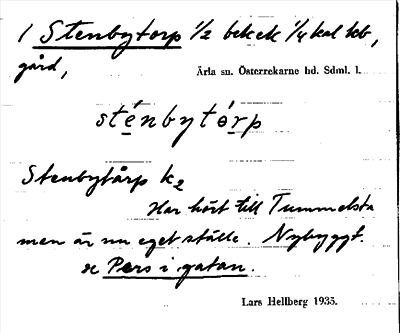 1 Stenbytorp 1/2 bek ek 1/4 kal kb,
gård,
Ärla sn. Österrekarne hd. Sdml. l.
sténbytórp
Stenbytårp k2
Har hört till Tummelsta
men är nu eget ställe. Nybyggt.
se Pers i gatan.
Lars Hellberg 1935.